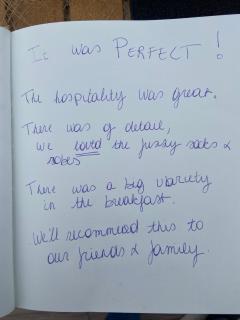 It was PERFECT!
The hospitality was great.
There was of detail,
we loved the fuzzy socks &
robes
There was a big variety
in the breakfast.
We'll recommend this to
our friends & family.